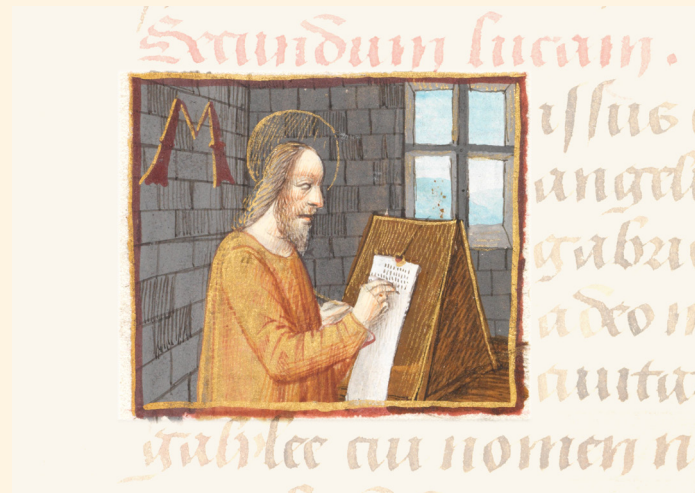 Secundum lucam.
M issus
angeli
gabri
a deo
ciuita
galylee cui nomen n